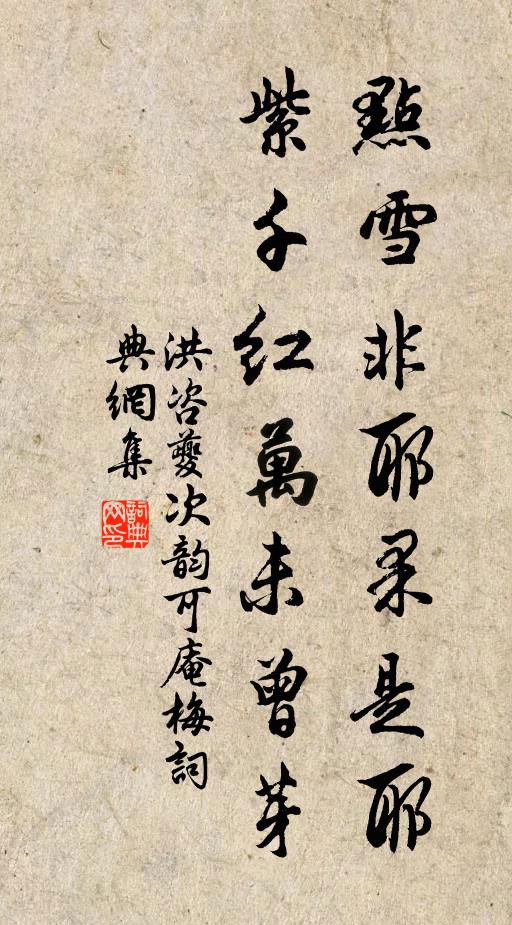 點雪非耶果是耶
紫千紅萬未曾芽
洪咨夔次韵可庵梅詞
典網集
詞典
网印